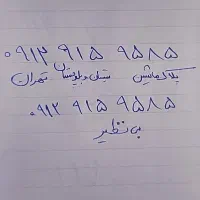 ۰۹۱۲ ۹۱۵ ۹۵۸۵
تهران سیستان و بلوچستان پلاک ماشین
۰۹۱۲ ۹۱۵ ۹۵۸۵
بی نظیر